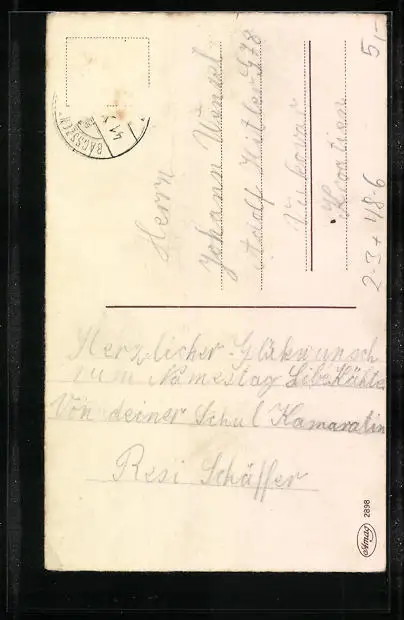 BÁCSSZEN
41. X
Herrn
Johann Wenzel
Adolf Hitler G. 78
Vukovar
Kroatien
5,-
2-3+48-6
Herzlicher Gläkwunsch
zum Namestag Libe Käthe
Von deiner Schul Kamaratin
Resi Schäffer
Amag
2898